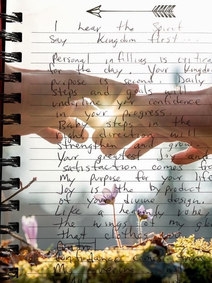 I hear the Spirit
Say Kingdom first...
Personal infilling is critical
for the day. Your Kingdom
purpose is second. Daily
steps and goals will
underline your confidence
in your progress.
Baby steps in the
right direction will
strengthen and grow.
Your greatest joy and
satisfaction comes from
My purpose for your life
Joy is the by product
of your divine design.
Like a heavenly robe,
the wings of my glory
that clothes you